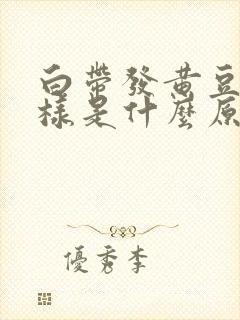 白帶發黃豆
樣是什麼原
優秀李